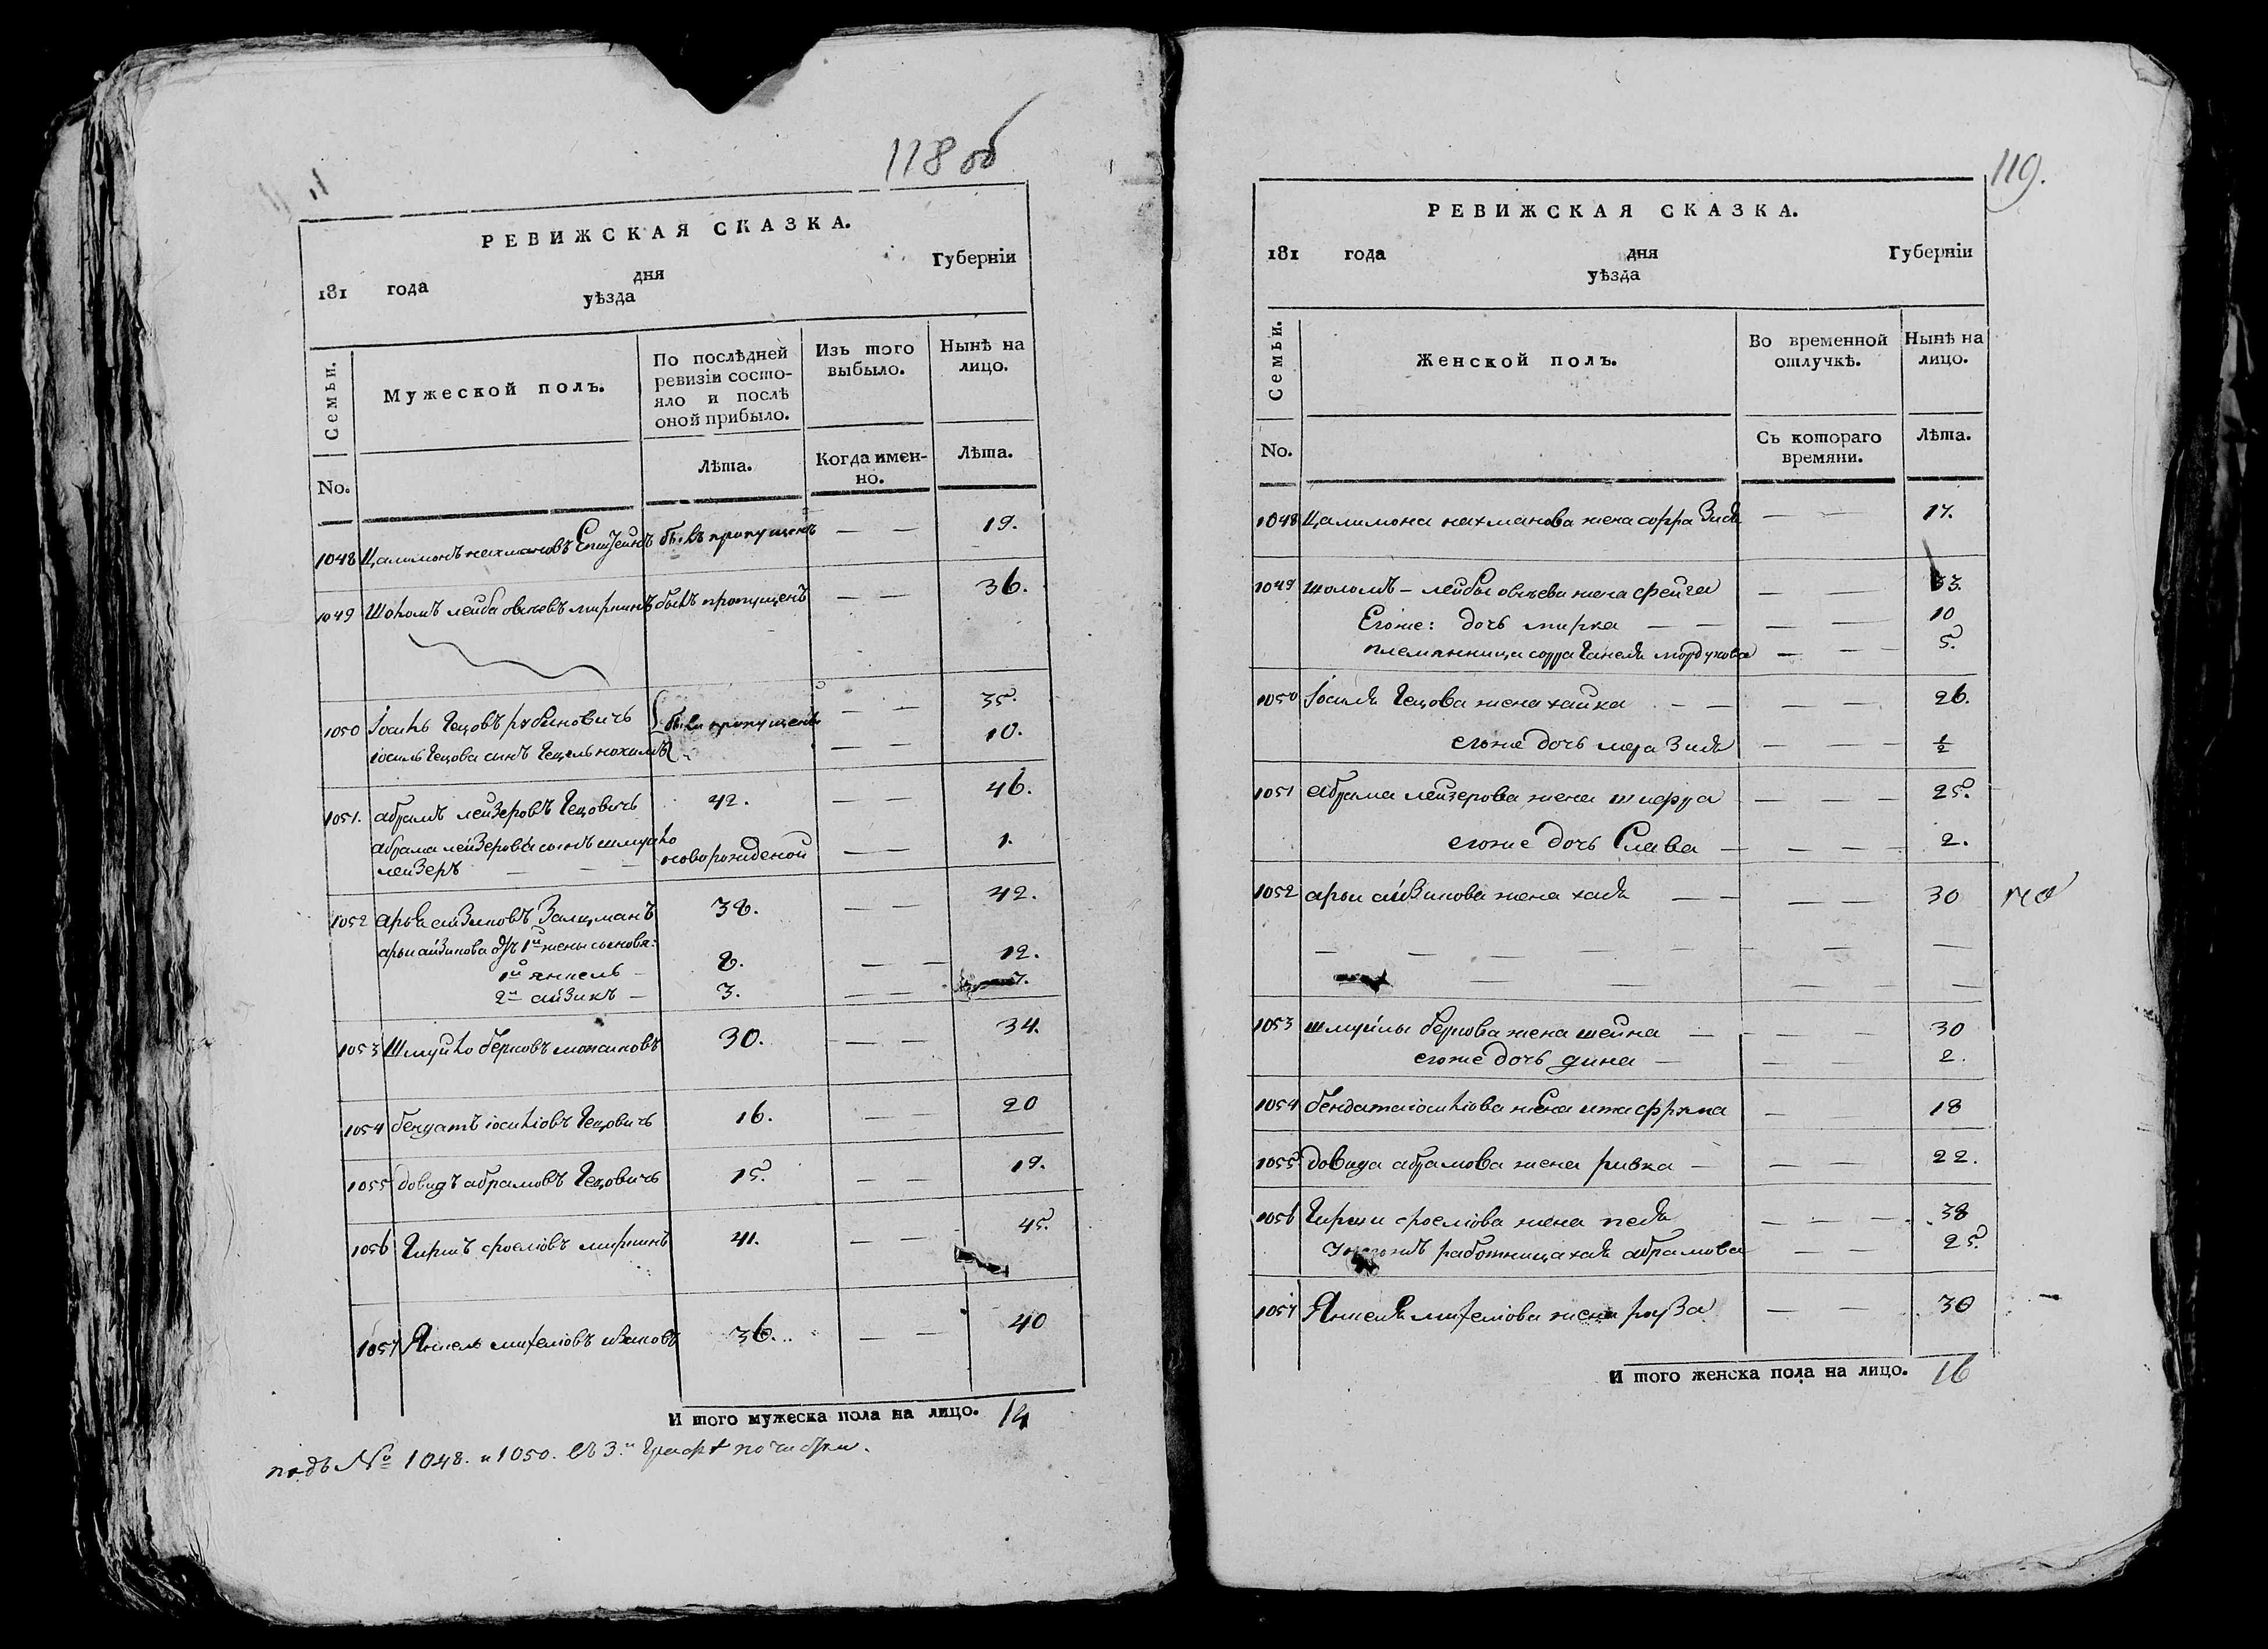 118 об
РЕВИЖСКАЯ СКАЗКА.
181 года дня Губерніи
уѣзда
Семьи.
Мужеской полъ.
По послѣдней ревизіи состо-
яло и послѣ
оной прибыло.
Изъ того выбыло.
Нынѣ на лицо.
No.
Лѣта.
Когда имен-
но.
Лѣта.
1048 Цалимонъ нахмановъ былъ пропущенъ — — 19.
1049 Шоломъ лейба овсѣевъ миркинъ былъ пропущенъ — — 36.
1050 Іосиль Гецовъ рубиновичь были пропущены — — 35.
іосиль Гецова синъ Гецель нохимъ — — 10.
1051. абрамъ лейзеровъ Гецовичь 42. — — 46.
абрама лейзерова сынъ шмуйло новорожденой — — 1.
лейзеръ — — —
1052 арья айзиковъ Залцманъ 38. — — 42.
арьи айзикова отъ 1й жены сыновя:
1й янкель — 8. — — 12.
2й айзикъ — 3. — — 7.
1053 Шмуйло берковъ 30. — — 34.
1054 бендатъ іосиліовъ Гецовичь 16. — — 20
1055 довидъ абрамовъ Гецовичь 15. — — 19.
1056 Гиршъ сроеліовъ миркинъ 41. — — 45.
1057 Янкель 36. — — 40
И того мужеска пола на лицо. 14
подъ № 1048. и 1050. въ 3й графѣ по чистки.
119.
РЕВИЖСКАЯ СКАЗКА.
181 года дня Губерніи
уѣзда
Семьи.
Женской полъ.
Во временной отлучкѣ.
Нынѣ на лицо.
No.
Съ котораго времяни.
Лѣта.
1048 Цалимона нахманова жена сорра Зидя — — 17.
1049 шоломъ – лейбы овсѣева жена фейга — — 33.
Егоже: дочь мирка — — — — 10
племянница сорра Ганеля мордухова — — — 5.
1050 Іосиля Гецова жена хайка — — — — 26.
егоже дочь мера Зидя — — — ½
1051 абрама лейзерова жена шифра — — — 25.
егоже дочь Слава — — — — 2.
1052 арьи айзикова жена хая — — — — 30
— — — — — — —
— — — — —
1053 шмуйлы беркова жена шейна — — — 30
егоже дочь дина — — — 2.
1054 бендата іосиліова жена ита фрума — — 18
1055 довида абрамова жена ривка — — — 22.
1056 Гирши сроеліова жена песя — — — 38
работница хая абрамова — — 25.
1057 Янкеля жена роза — — 30
И того женска пола на лицо. 16